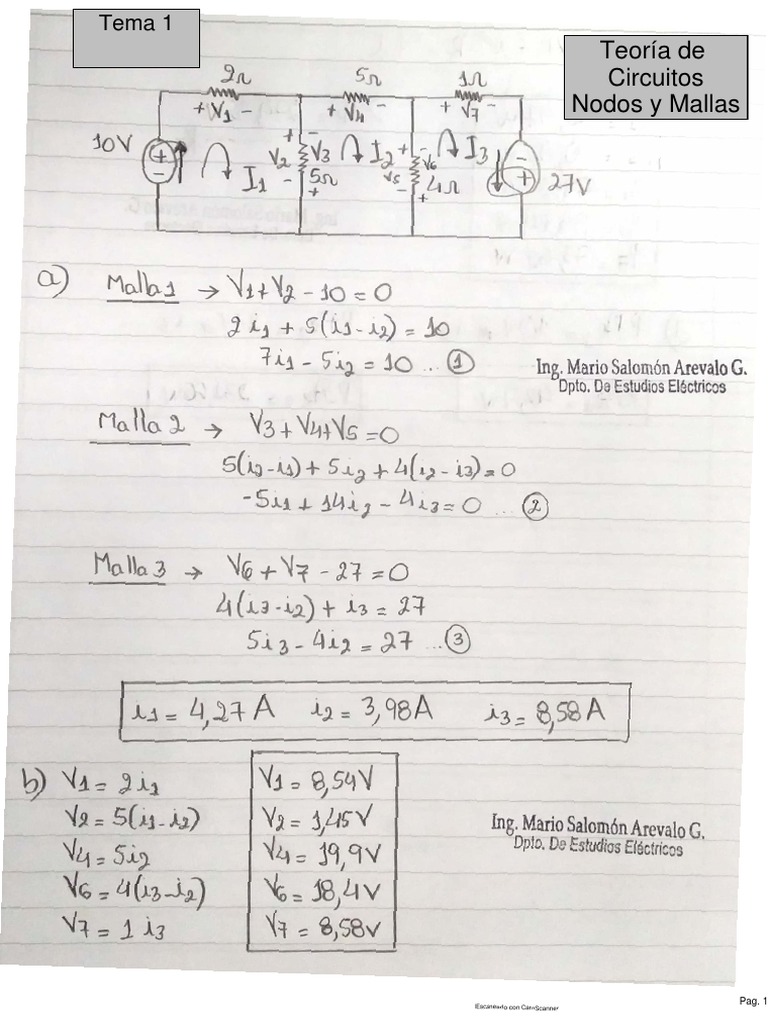 Tema 1
Teoría de
Circuitos
Nodos y Mallas
2Ω 5Ω 1Ω
+ V1 - + V4 - + V7 -
10V + - I1 + V2 - - V3 + 5Ω I2 + V5 - - V6 + 4Ω I3 - + 27V
a) Malla 1 → V1 + V2 - 10 = 0
2i1 + 5(i1 - i2) = 10
7i1 - 5i2 = 10 ... ①
Ing. Mario Salomón Arevalo G.
Dpto. De Estudios Eléctricos
Malla 2 → V3 + V4 + V5 = 0
5(i2 - i1) + 5i2 + 4(i2 - i3) = 0
-5i1 + 14i2 - 4i3 = 0 ... ②
Malla 3 → V6 + V7 - 27 = 0
4(i3 - i2) + i3 = 27
5i3 - 4i2 = 27 ... ③
i1 = 4,27 A i2 = 3,98 A i3 = 8,58 A
b) V1 = 2i1 V1 = 8,54V
V2 = 5(i1 - i2) V2 = 1,45V
V4 = 5i2 V4 = 19,9V
V6 = 4(i3 - i2) V6 = 18,4V
V7 = 1 i3 V7 = 8,58V
Ing. Mario Salomón Arevalo G.
Dpto. De Estudios Eléctricos
Pag. 1
Escaneado con CamScanner